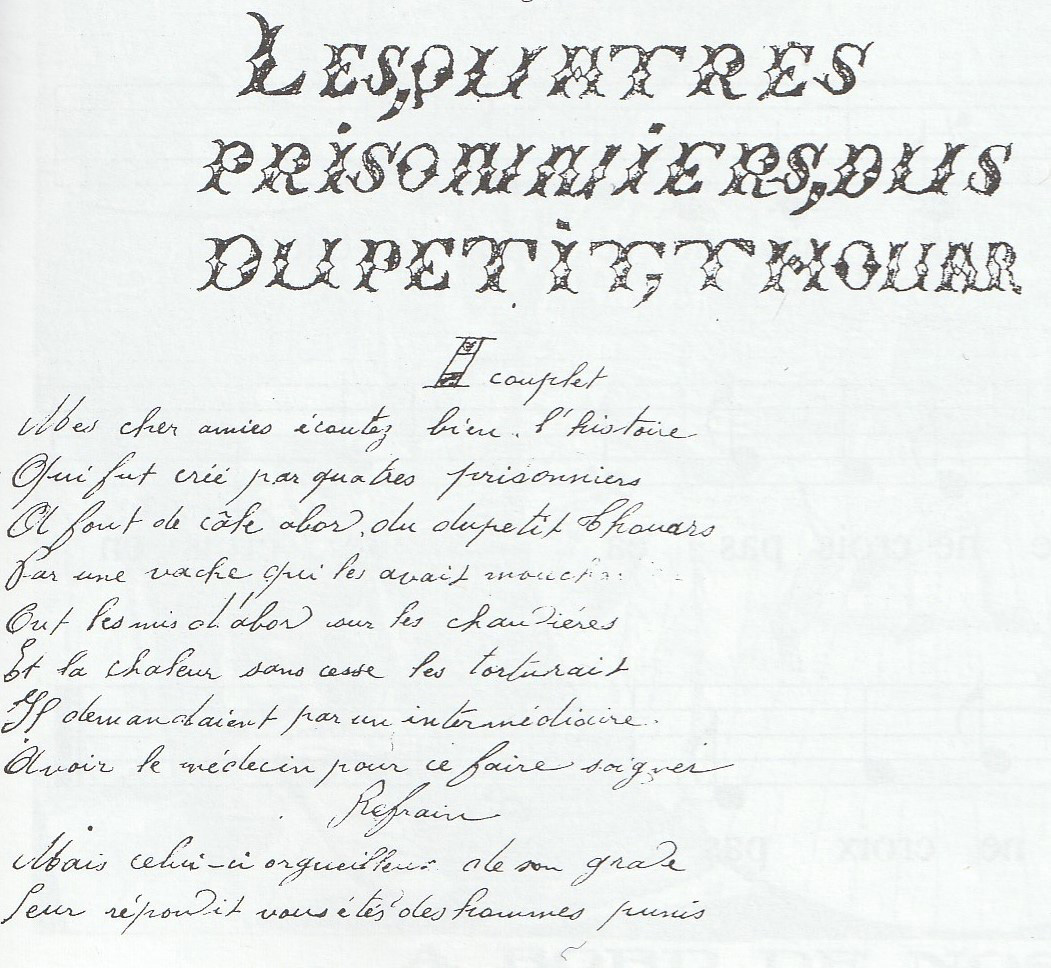 LES, QUATRES
PRISONNIERS, DUS
DUPETIT, THOUAR
I couplet
Mes cher amies écoutez bien l'histoire
Qui fut créé par quatres prisonniers
Au fond de câle abord, du dupetit Thouars
Par une vache qui les avait mouch
Out les mis d'abord sur les chaudiéres
Et la chaleur sans cesse les torturait
Il demandaient par un intermédiaire
Avoir le médecin pour ce faire soigner
Refrain
Mais celui-ci orgueilleux de son grade
Leur répondit vous étés des hommes punis